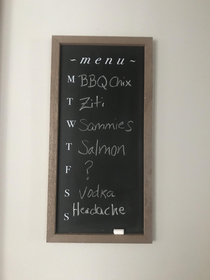 ~menu~
M BBQ Chix
T Ziti
W Sammies
T Salmon
F ?
S Vodka
S Headache